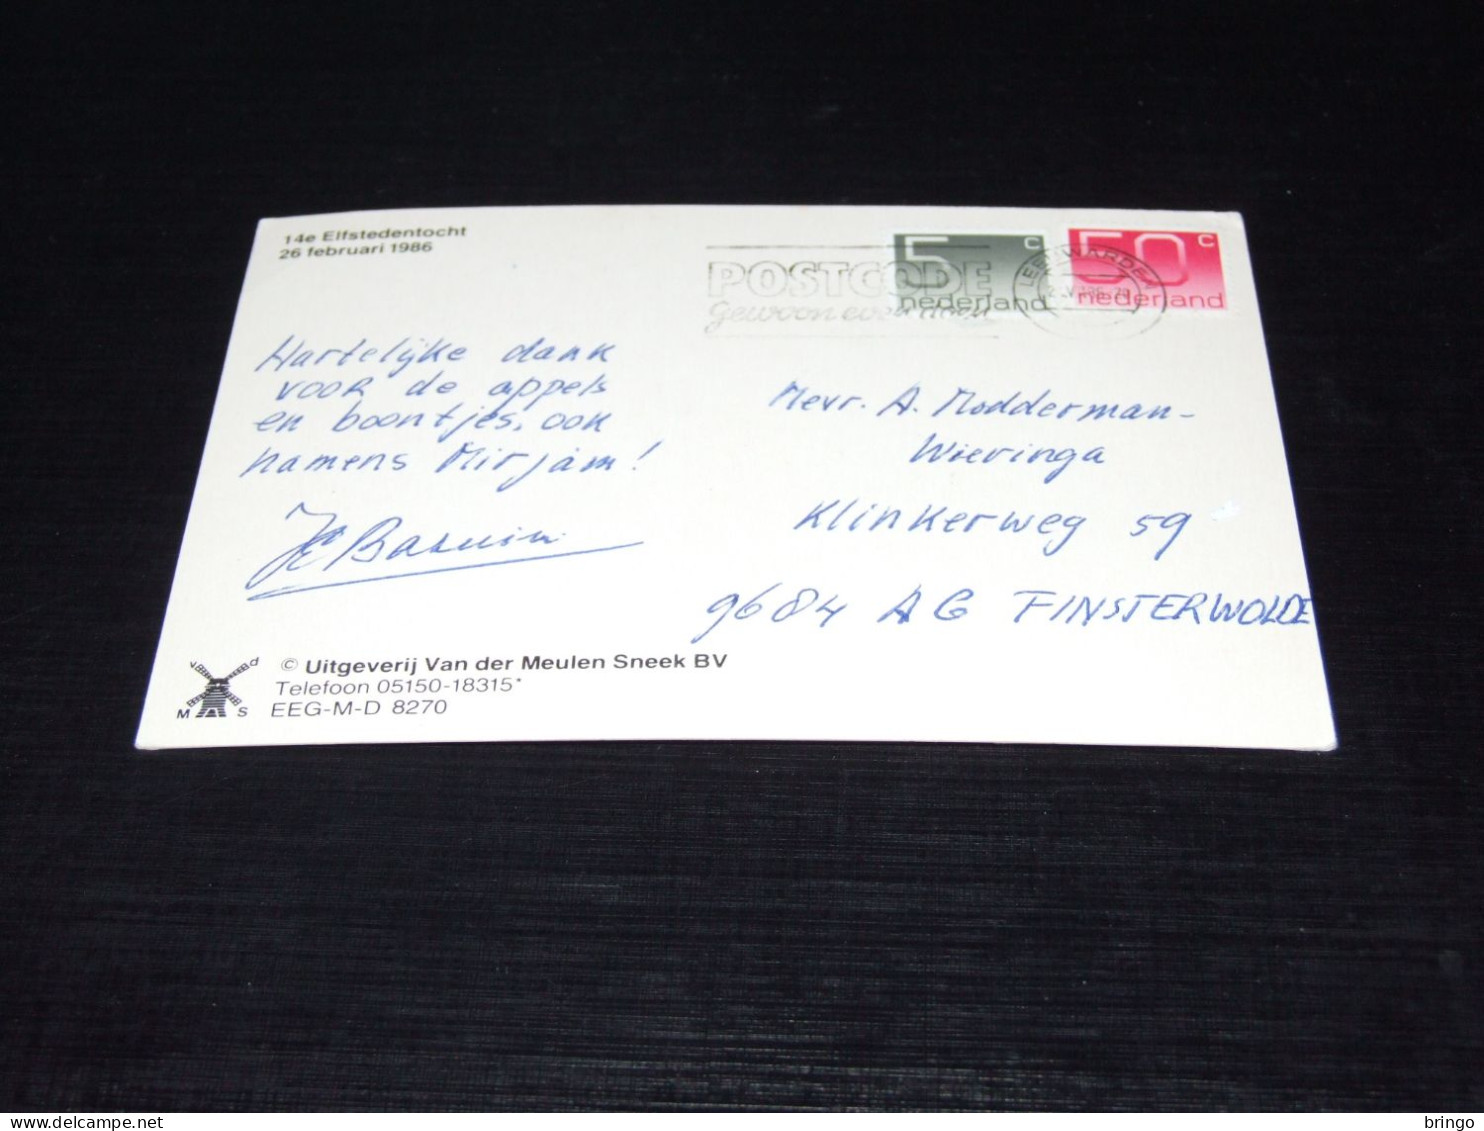 14e Elfstedentocht
26 februari 1986
POSTCODE
gewoon even doen
5 c
nederland
50 c
nederland
LEEUWARDEN
Hartelijke dank
voor de appels
en boontjes, ook
namens Mirjam!
Mevr. A. Modderman-
Wieringa
Klinkerweg 59
9684 AG FINSTERWOLDE
v d
M S
© Uitgeverij Van der Meulen Sneek BV
Telefoon 05150-18315*
EEG-M-D 8270
bringo